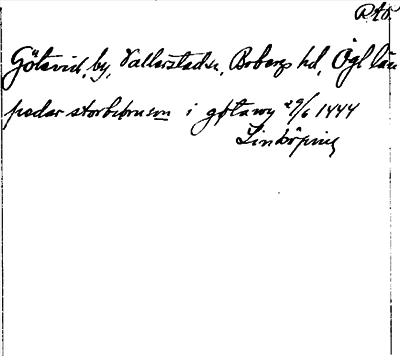 RAp.
Götevid, by, Vallerstads sn, Bobergs hd, Ögl län
peder storbiørnson i gøtawy 29/6 1444
Linköping